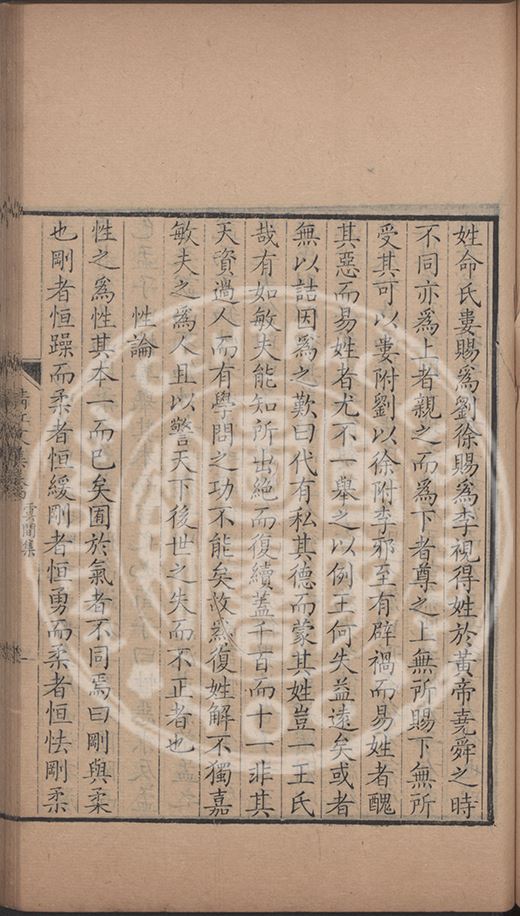 姓命氏婁賜爲劉徐賜爲李視得姓於黃帝堯舜之時
不同亦爲上者親之而爲下者尊之上無所賜下無所
受其可以婁附劉以徐附李邪至有辟禍而易姓者醜
其惡而易姓者尤不一舉之以例王何失益遠矣或者
無以詰因爲之歎曰代有私其德而蒙其姓豈一王氏
哉有如敏夫能知所出絕而復續蓋千百而十一非其
天資過人而有學問之功不能矣故爲復姓解不獨嘉
敏夫之爲人且以警天下後世之失而不正者也
性論
性之爲性其本一而已矣囿於氣者不同焉曰剛與柔
也剛者恒躁而柔者恒緩剛者恒勇而柔者恒怯剛柔
清江文集
雲間集